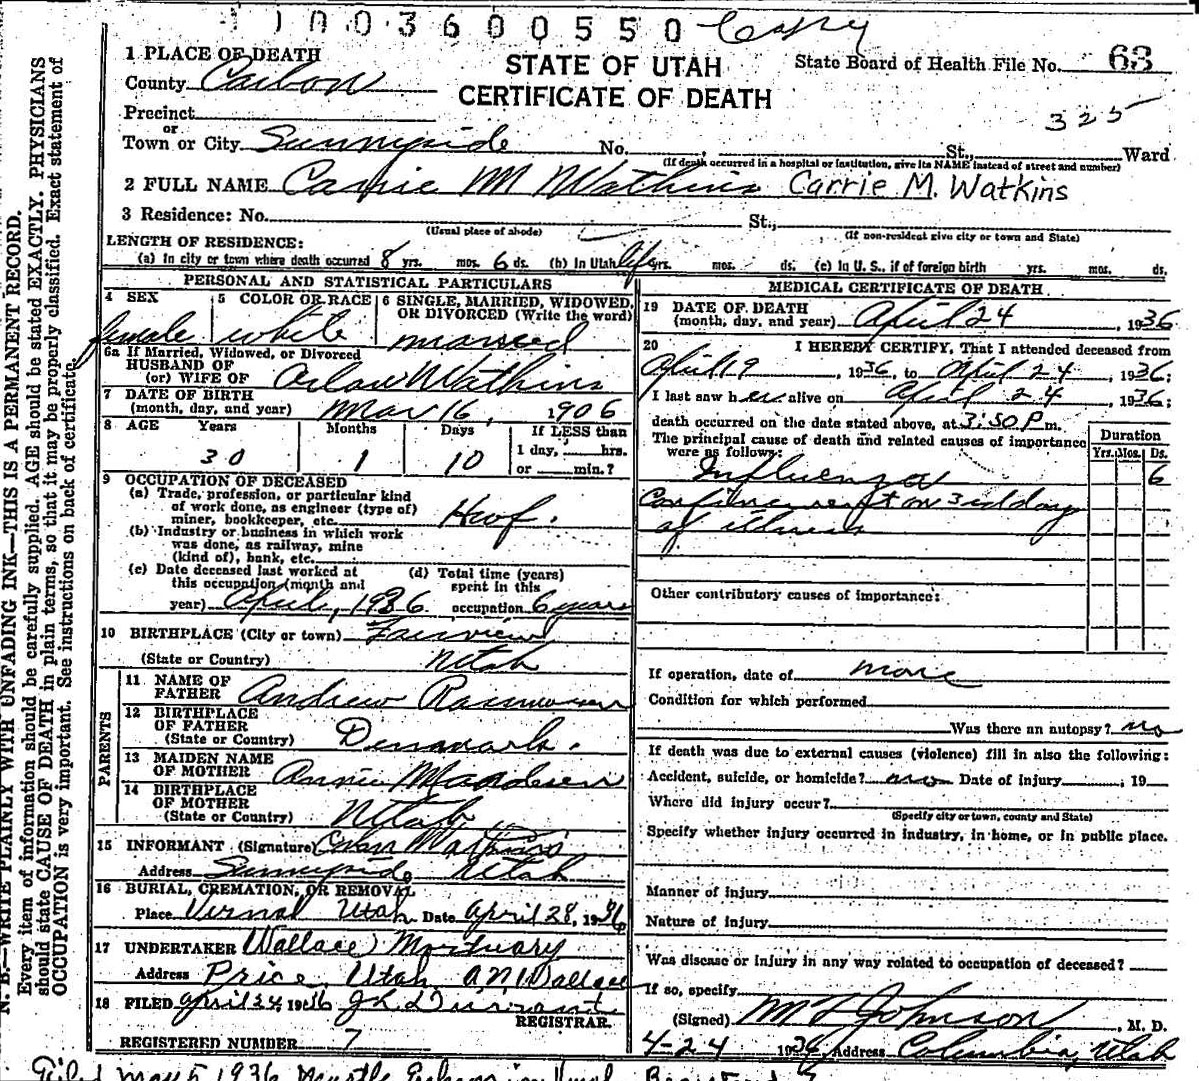 1003600550 Copy
1 PLACE OF DEATH
STATE OF UTAH
State Board of Health File No. 63
County Carbon
CERTIFICATE OF DEATH
Precinct
325
or
Town or City Sunnyside No. , St., Ward
(If death occurred in a hospital or institution, give its NAME instead of street and number)
2 FULL NAME Carrie M Watkins Carrie M. Watkins
3 Residence: No. St.,
(Usual place of abode) (If non-resident give city or town and State)
LENGTH OF RESIDENCE:
(a) In city or town where death occurred 8 yrs. mos. 6 ds. (b) In Utah life yrs. mos. ds. (c) In U. S., if of foreign birth yrs. mos. ds.
PERSONAL AND STATISTICAL PARTICULARS
4 SEX
female
5 COLOR OR RACE
white
6 SINGLE, MARRIED, WIDOWED,
OR DIVORCED (Write the word)
married
6a If Married, Widowed, or Divorced
HUSBAND OF
(or) WIFE OF Watkins
7 DATE OF BIRTH
(month, day, and year) Mar 16, 1906
8 AGE Years Months Days If LESS than
30 1 10 1 day, hrs.
or min.?
9 OCCUPATION OF DECEASED
(a) Trade, profession, or particular kind
of work done, as engineer (type of)
miner, bookkeeper, etc. Hwf.
(b) Industry or business in which work
was done, as railway, mine
(kind of), bank, etc.
(c) Date deceased last worked at
this occupation (month and
year) April, 1936
(d) Total time (years)
spent in this
occupation 6 years
10 BIRTHPLACE (City or town) Fairview
(State or Country) Utah
PARENTS
11 NAME OF
FATHER Andrew Rasmussen
12 BIRTHPLACE
OF FATHER
(State or Country) Denmark.
13 MAIDEN NAME
OF MOTHER Annie
14 BIRTHPLACE
OF MOTHER
(State or Country) Utah
15 INFORMANT (Signature) Watkins
Address Sunnyside Utah
16 BURIAL, CREMATION, OR REMOVAL
Place Vernal Utah Date April 28, 1936
17 UNDERTAKER Wallace Mortuary
Address Price, Utah A.N. Wallace
18 FILED April 24 1936 Durrant
REGISTRAR.
REGISTERED NUMBER 7
MEDICAL CERTIFICATE OF DEATH
19 DATE OF DEATH
(month, day, and year) April 24, 1936
20 I HEREBY CERTIFY, That I attended deceased from
April 19, 1936, to April 24, 1936;
I last saw her alive on April 24, 1936;
death occurred on the date stated above, at 3:50 P m.
The principal cause of death and related causes of importance
were as follows:
Duration
Yrs. Mos. Ds.
Influenza 6
Confinement on 3rd day
of illness
Other contributory causes of importance:
If operation, date of none
Condition for which performed
Was there an autopsy? no
If death was due to external causes (violence) fill in also the following:
Accident, suicide, or homicide? no Date of injury , 19
Where did injury occur?
(Specify city or town, county and State)
Specify whether injury occurred in industry, in home, or in public place.
Manner of injury
Nature of injury
Was disease or injury in any way related to occupation of deceased?
If so, specify
(Signed) Johnson, M. D.
4-24 1936 Address Columbia, Utah
Filed May 5 1936
N. B.—WRITE PLAINLY WITH UNFADING INK—THIS IS A PERMANENT RECORD.
Every item of information should be carefully supplied. AGE should be stated EXACTLY. PHYSICIANS
should state CAUSE OF DEATH in plain terms, so that it may be properly classified. Exact statement of
OCCUPATION is very important. See instructions on back of certificate.